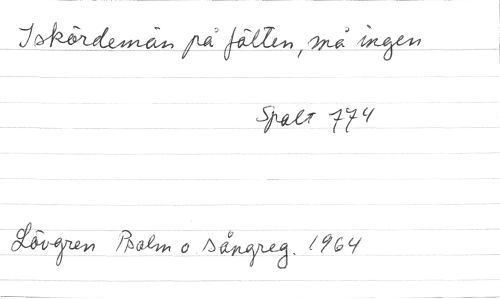 I skördemän på fälten, må ingen
Spalt 774
Lövgren Psalm o sångreg. 1964